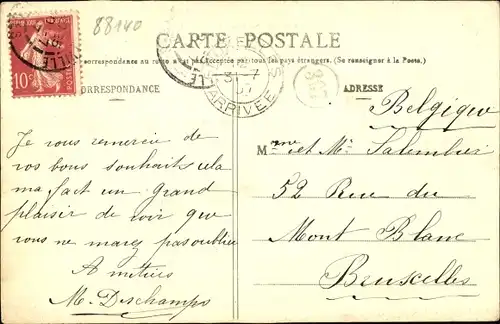 88140
CARTE POSTALE
La Correspondance au recto n'est pas acceptée par tous les pays étrangers. (Se renseigner à la Poste.)
CORRESPONDANCE
ADRESSE
10c
ARRIVÉE
3 - 7
07
VILLE
Je vous remercie de
vos bons souhaits cela
ma fact un grand
plaisir de voir que
vous ne mavez pas oubliée
Amitiés
M. Deschamps
Belgique
Mme et Mr Salembier
52 Rue du
Mont Blanc
Bruxelles